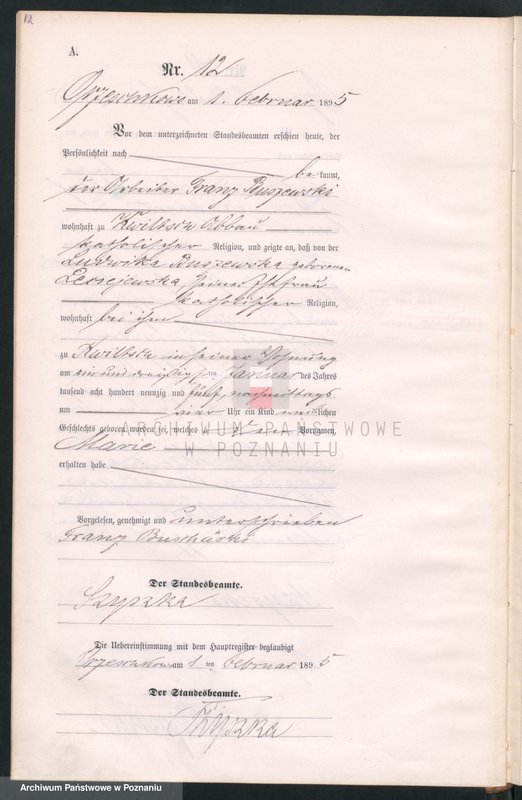 12
A.
Nr. 12
Orzeschkowo am 1. Februar 1895
Vor dem unterzeichneten Standesbeamten erschien heute, der
Persönlichkeit nach be kannt,
der Arbeiter Franz Buszewski
wohnhaft zu Kwiltsch Abbau
katholischer Religion, und zeigte an, daß von der
Ludwika Buszewska geborenen
seiner Ehefrau
katholischer Religion,
wohnhaft bei ihm
zu Kwiltsch in seiner Wohnung
am ein und dreißigsten Januar des Jahres
tausend acht hundert neunzig und fünf, nachmittags
um vier Uhr ein Kind weiblichen
Geschlechts geboren worden sei, welches den Vornamen
Marie
erhalten habe
Vorgelesen, genehmigt und unterschrieben
Franz Buschäski
Der Standesbeamte.
Szyszka
Die Uebereinstimmung mit dem Hauptregister beglaubigt
Orzeschkowo am 1 ten Februar 1895
Der Standesbeamte.
Szyszka
ARCHIWUM PAŃSTWOWE
W POZNANIU
Archiwum Państwowe w Poznaniu